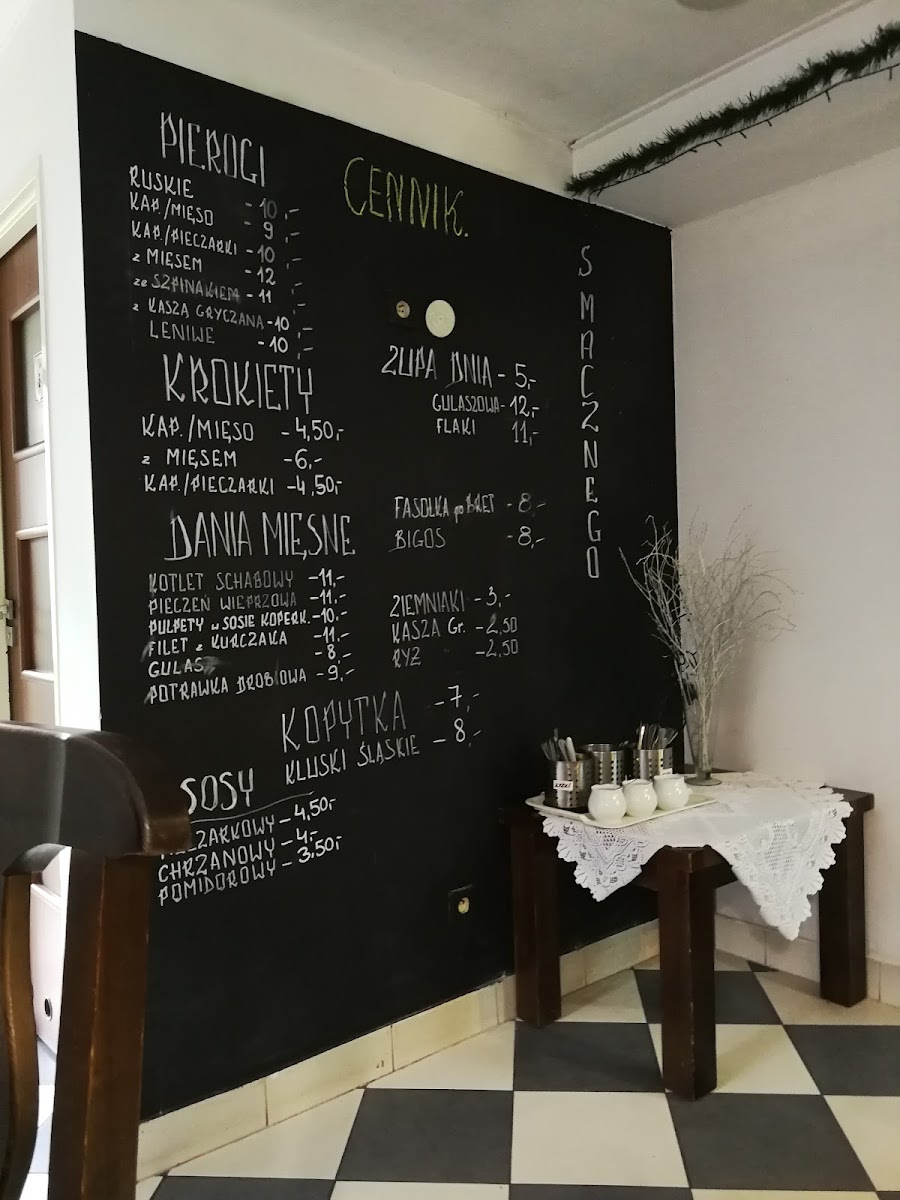 PIEROGI
RUSKIE - 10,-
KAP./MIĘSO - 9,-
KAP./PIECZARKI - 10,-
z MIĘSEM - 12,-
ze SZPINAKIEM - 11,-
z KASZĄ GRYCZANĄ - 10,-
LENIWE - 10,-
KROKIETY
KAP./MIĘSO - 4,50,-
z MIĘSEM - 6,-
KAP./PIECZARKI - 4,50,-
DANIA MIĘSNE
KOTLET SCHABOWY - 11,-
PIECZEŃ WIEPRZOWA - 11,-
PULPETY w SOSIE KOPERK. - 10,-
FILET z KURCZAKA - 11,-
GULAS - 8,-
POTRAWKA DROBIOWA - 9,-
KOPYTKA - 7,-
KLUSKI ŚLĄSKIE - 8,-
SOSY
- 4,50,-
CHRZANOWY - 4,-
POMIDOROWY - 3,50,-
CENNIK.
ZUPA DNIA - 5,-
GULASZOWA - 12,-
FLAKI 11,-
FASOLKA po BRET - 8,-
BIGOS - 8,-
ZIEMNIAKI - 3,-
KASZA Gr. - 2,50
RYŻ - 2,50
SMACZNEGO